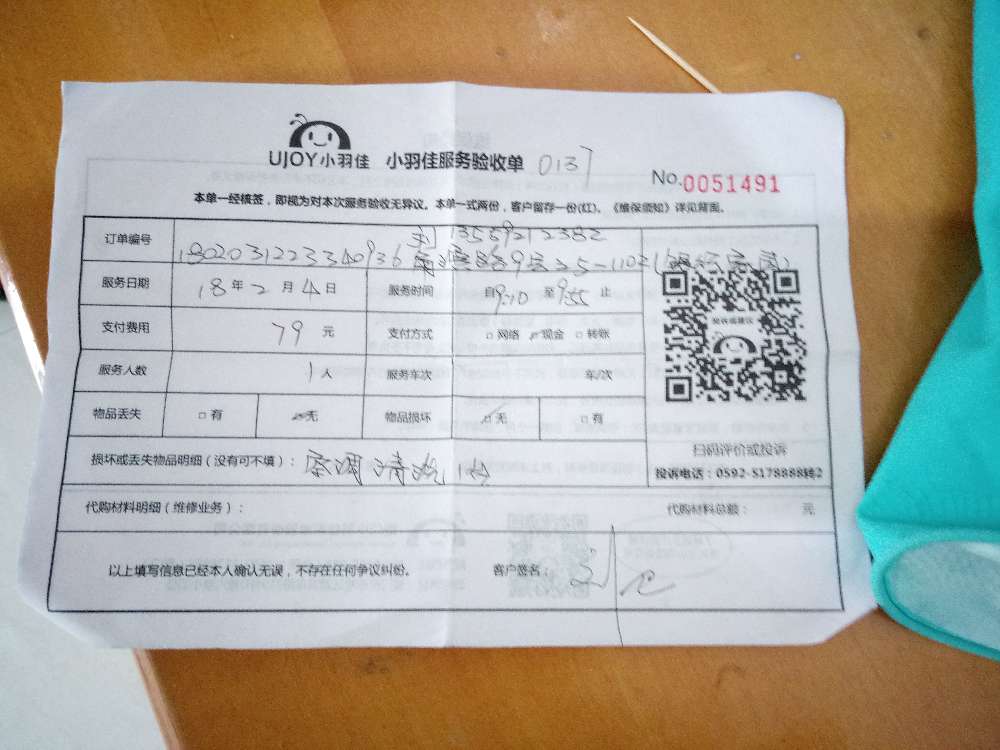 UJOY小羽佳 小羽佳服务验收单 0137
No.0051491
本单一经核签，即视为对本次服务验收无异议。本单一式两份，客户留存一份(红)。《维保须知》详见背面。
订单编号 刘13559212382
1802031223340936
服务日期 18年2月4日 服务时间 自9:10至9:55止
投诉或建议
支付费用 79元 支付方式 □网络 ☑现金 □转账
服务人数 1人 服务车次 车/次
物品丢失 □有 ☑无 物品损坏 ☑无 □有
扫码评价或投诉
损坏或丢失物品明细（没有可不填）：空调清洗1台
投诉电话：0592-5178888转2
代购材料明细（维修业务）： 代购材料总额： 元
以上填写信息已经本人确认无误，不存在任何争议纠纷。 客户签名：